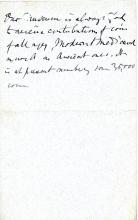 Our museum is always glad
to receive contributions of coins
of all ages, Modern & mediaeval
as well as Ancient ones. It
is at present numbers some 35,000
coins